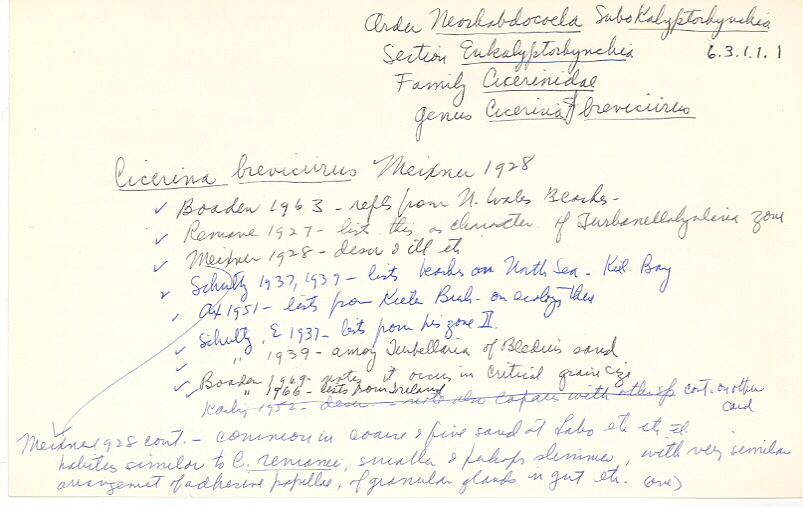 Order Neorhabdocoela Subo Kalyptorhynchia
Section Eukalyptorhynchia 6.3.1.1.1
Family Cicerinidae
genus Cicerina brevicirrus
Cicerina brevicirrus Meixner 1928
✓ Boaden 1963 - repts from N. Wales Beaches -
✓ Remane 1927 - lists this as character of Turbanella hyalina zone
✓ Meixner 1928 - descr & ill etc
✓ Schultz 1937, 1939 - lists on North Sea - Kiel Bay
✓ Ax 1951 - lists from Kieler - on ecology there
✓ Schultz, E 1937 - lists from his zone II.
✓ " 1939 - among Turbellaria of Bledius sand
✓ Boaden 1969 - notes it occurs in critical grain size
✓ " 1966 - lists from Ireland
Karling 1952 - descr - note also with other sp cont. on other card
Meixner 1928 cont. - common in coarse & fine sand at Labo etc etc.
habitus similar to C. remanei, smaller & perhaps slimmer, with very similar
arrangemet of adhesive papillae, of granular glands in gut etc. (over)